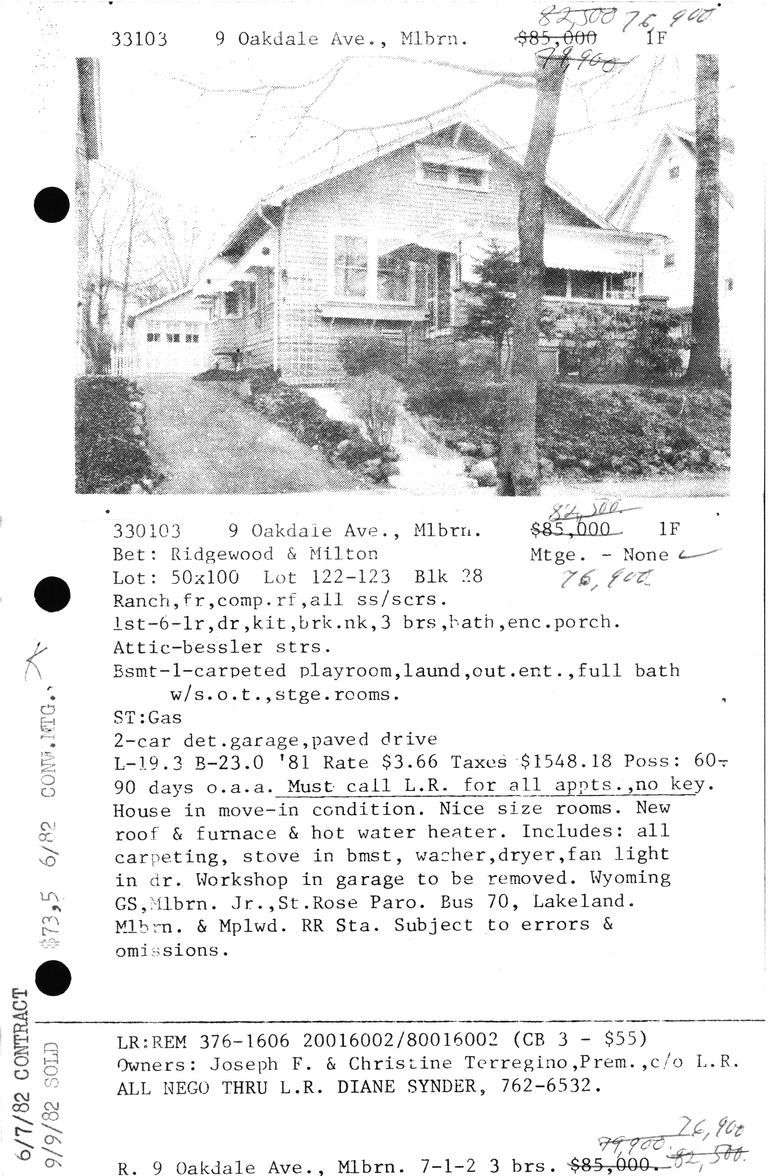 82,500 76,900
33103 9 Oakdale Ave., Mlbrn. $85,000 1F
79,900
82,500
330103 9 Oakdale Ave., Mlbrn. $85,000 1F
Bet: Ridgewood & Milton Mtge. - None
Lot: 50x100 Lot 122-123 Blk 28 76,900
Ranch,fr,comp.rf,all ss/scrs.
1st-6-lr,dr,kit,brk.nk,3 brs,bath,enc.porch.
Attic-bessler strs.
Bsmt-1-carpeted playroom,laund,out.ent.,full bath
w/s.o.t.,stge.rooms.
ST:Gas
2-car det.garage,paved drive
L-19.3 B-23.0 '81 Rate $3.66 Taxes $1548.18 Poss: 60-
90 days o.a.a. Must call L.R. for all appts.,no key.
House in move-in condition. Nice size rooms. New
roof & furnace & hot water heater. Includes: all
carpeting, stove in bmst, washer,dryer,fan light
in dr. Workshop in garage to be removed. Wyoming
GS,Mlbrn. Jr.,St.Rose Paro. Bus 70, Lakeland.
Mlbrn. & Mplwd. RR Sta. Subject to errors &
omissions.
$73,5 6/82 CONV.MTG.
6/7/82 CONTRACT
9/9/82 SOLD
LR:REM 376-1606 20016002/80016002 (CB 3 - $55)
Owners: Joseph F. & Christine Terregino,Prem.,c/o L.R.
ALL NEGO THRU L.R. DIANE SYNDER, 762-6532.
79,900 76,900
R. 9 Oakdale Ave., Mlbrn. 7-1-2 3 brs. $85,000. 82,500.